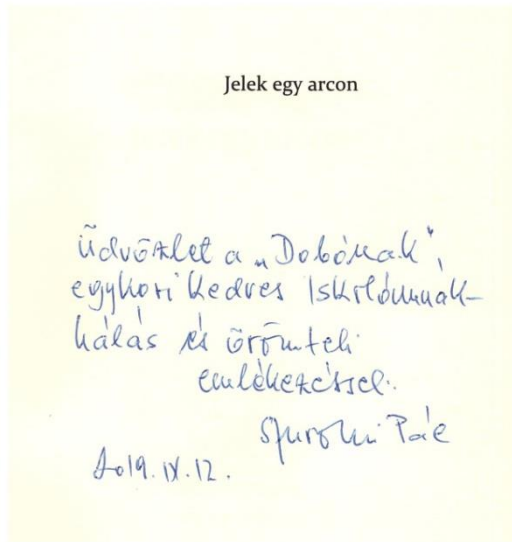 Jelek egy arcon
Üdvözlet a „Dobónak",
egykori kedves Iskolámnak-
hálás és örömteli
emlékezéssel.
Pál
2019. IX. 12.